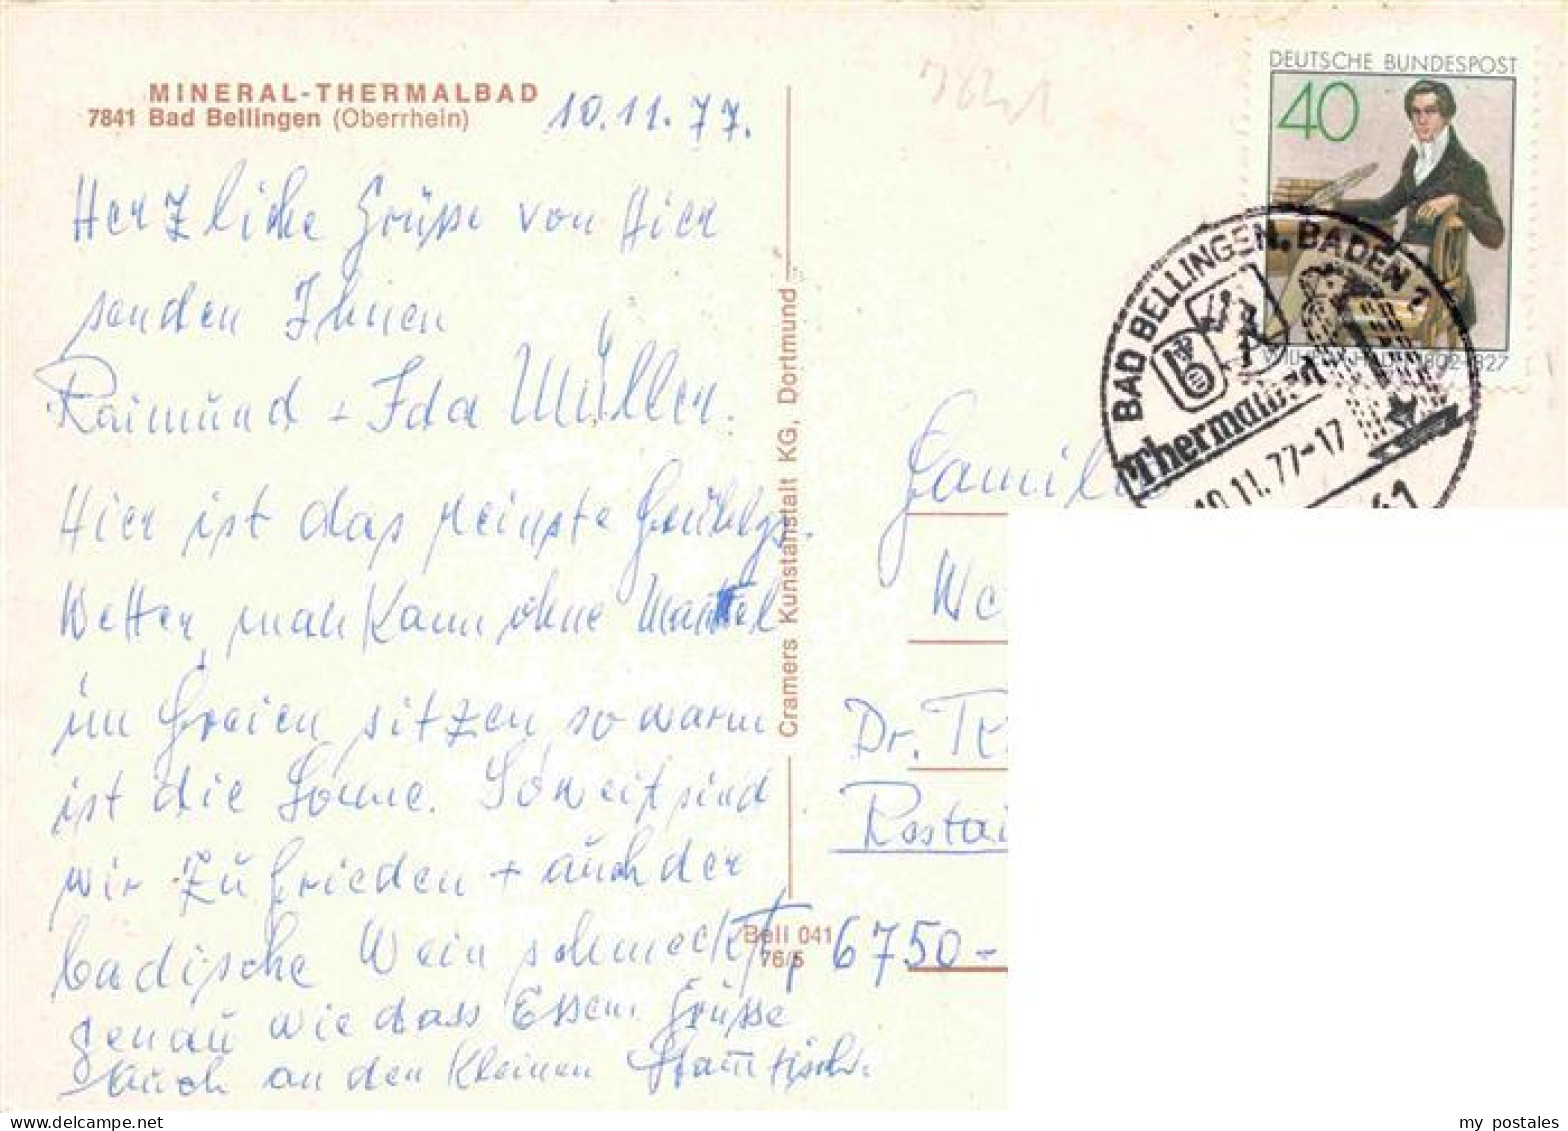 MINERAL-THERMALBAD
7841 Bad Bellingen (Oberrhein)
10.11.77.
Herzliche Grüsse von Hier
senden Ihnen
Raimund + Ida Müller.
Hier ist das reinste Frühlgs.
Wetter, man kann ohne Mantel
im Freien sitzen so warm
ist die Sonne. Soweit sind
wir zufrieden + auch der
badische Wein schmeckt,
genau wie dass Essen. Grüsse
auch an den kleinen Stamtisch.
Cramers Kunstanstalt KG, Dortmund
Bell 041
76/5
7841
DEUTSCHE BUNDESPOST
40
BAD BELLINGEN, BADEN 1
Thermalbad
10.11.77-17
Familie
Dr.
6750-
my postales